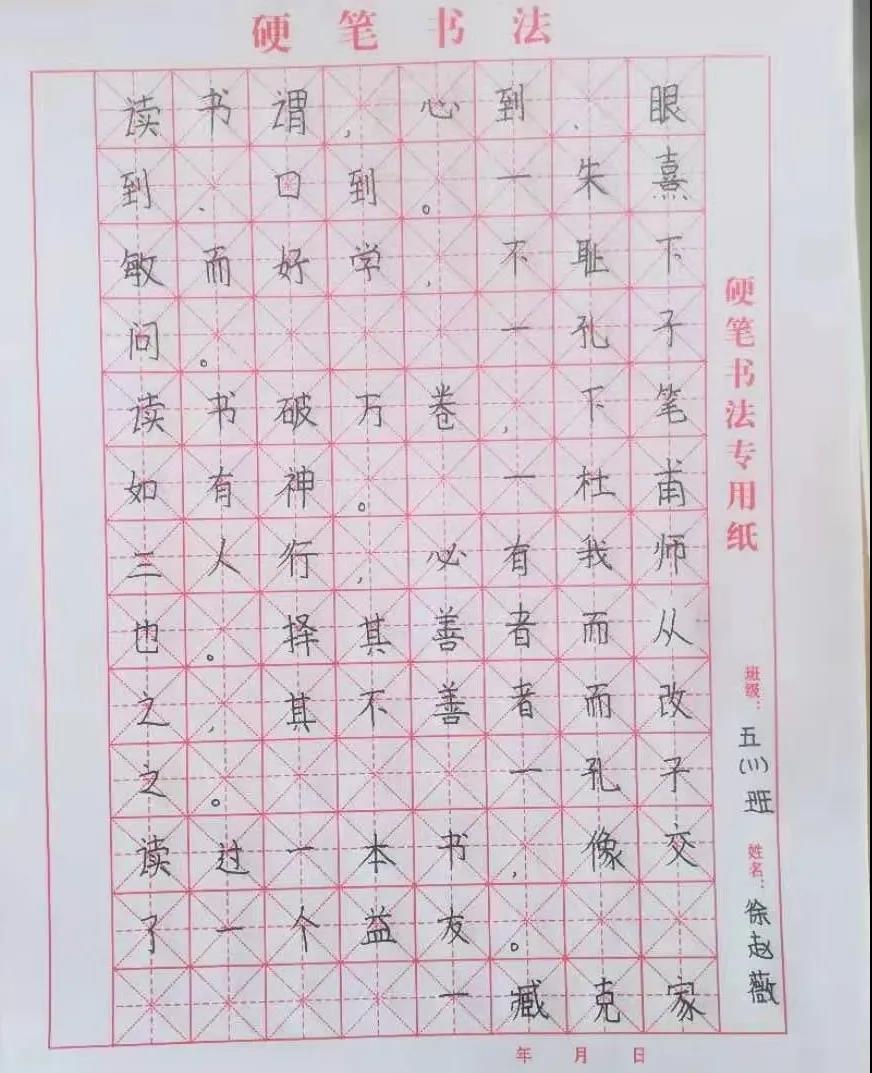 硬笔书法
读书谓，心到、眼
到、口到。一朱熹
敏而好学，不耻下
问。一孔子
读书破万卷，下笔
如有神。一杜甫
三人行，必有我师
也。择其善者而从
之，其不善者而改
之。一孔子
读过一本书，像交
了一个益友。
一臧克家
硬笔书法专用纸
班级：五(11)班
姓名：徐赵薇
年 月 日